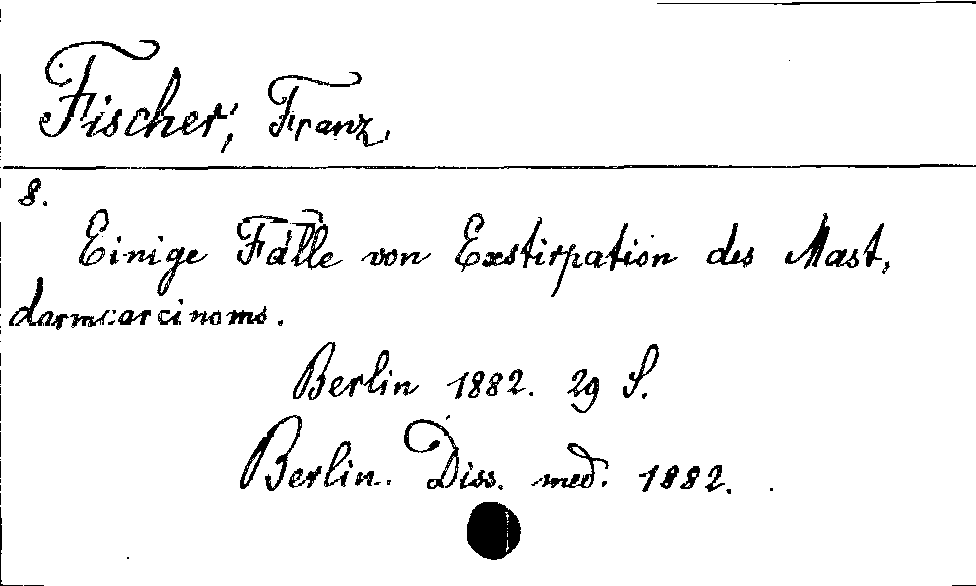 Fischer, Franz,
8.
Einige Fälle von Exstirpation des Mast,
darmcarcinoms.
Berlin 1882. 29 S.
Berlin. Diss. med. 1882.